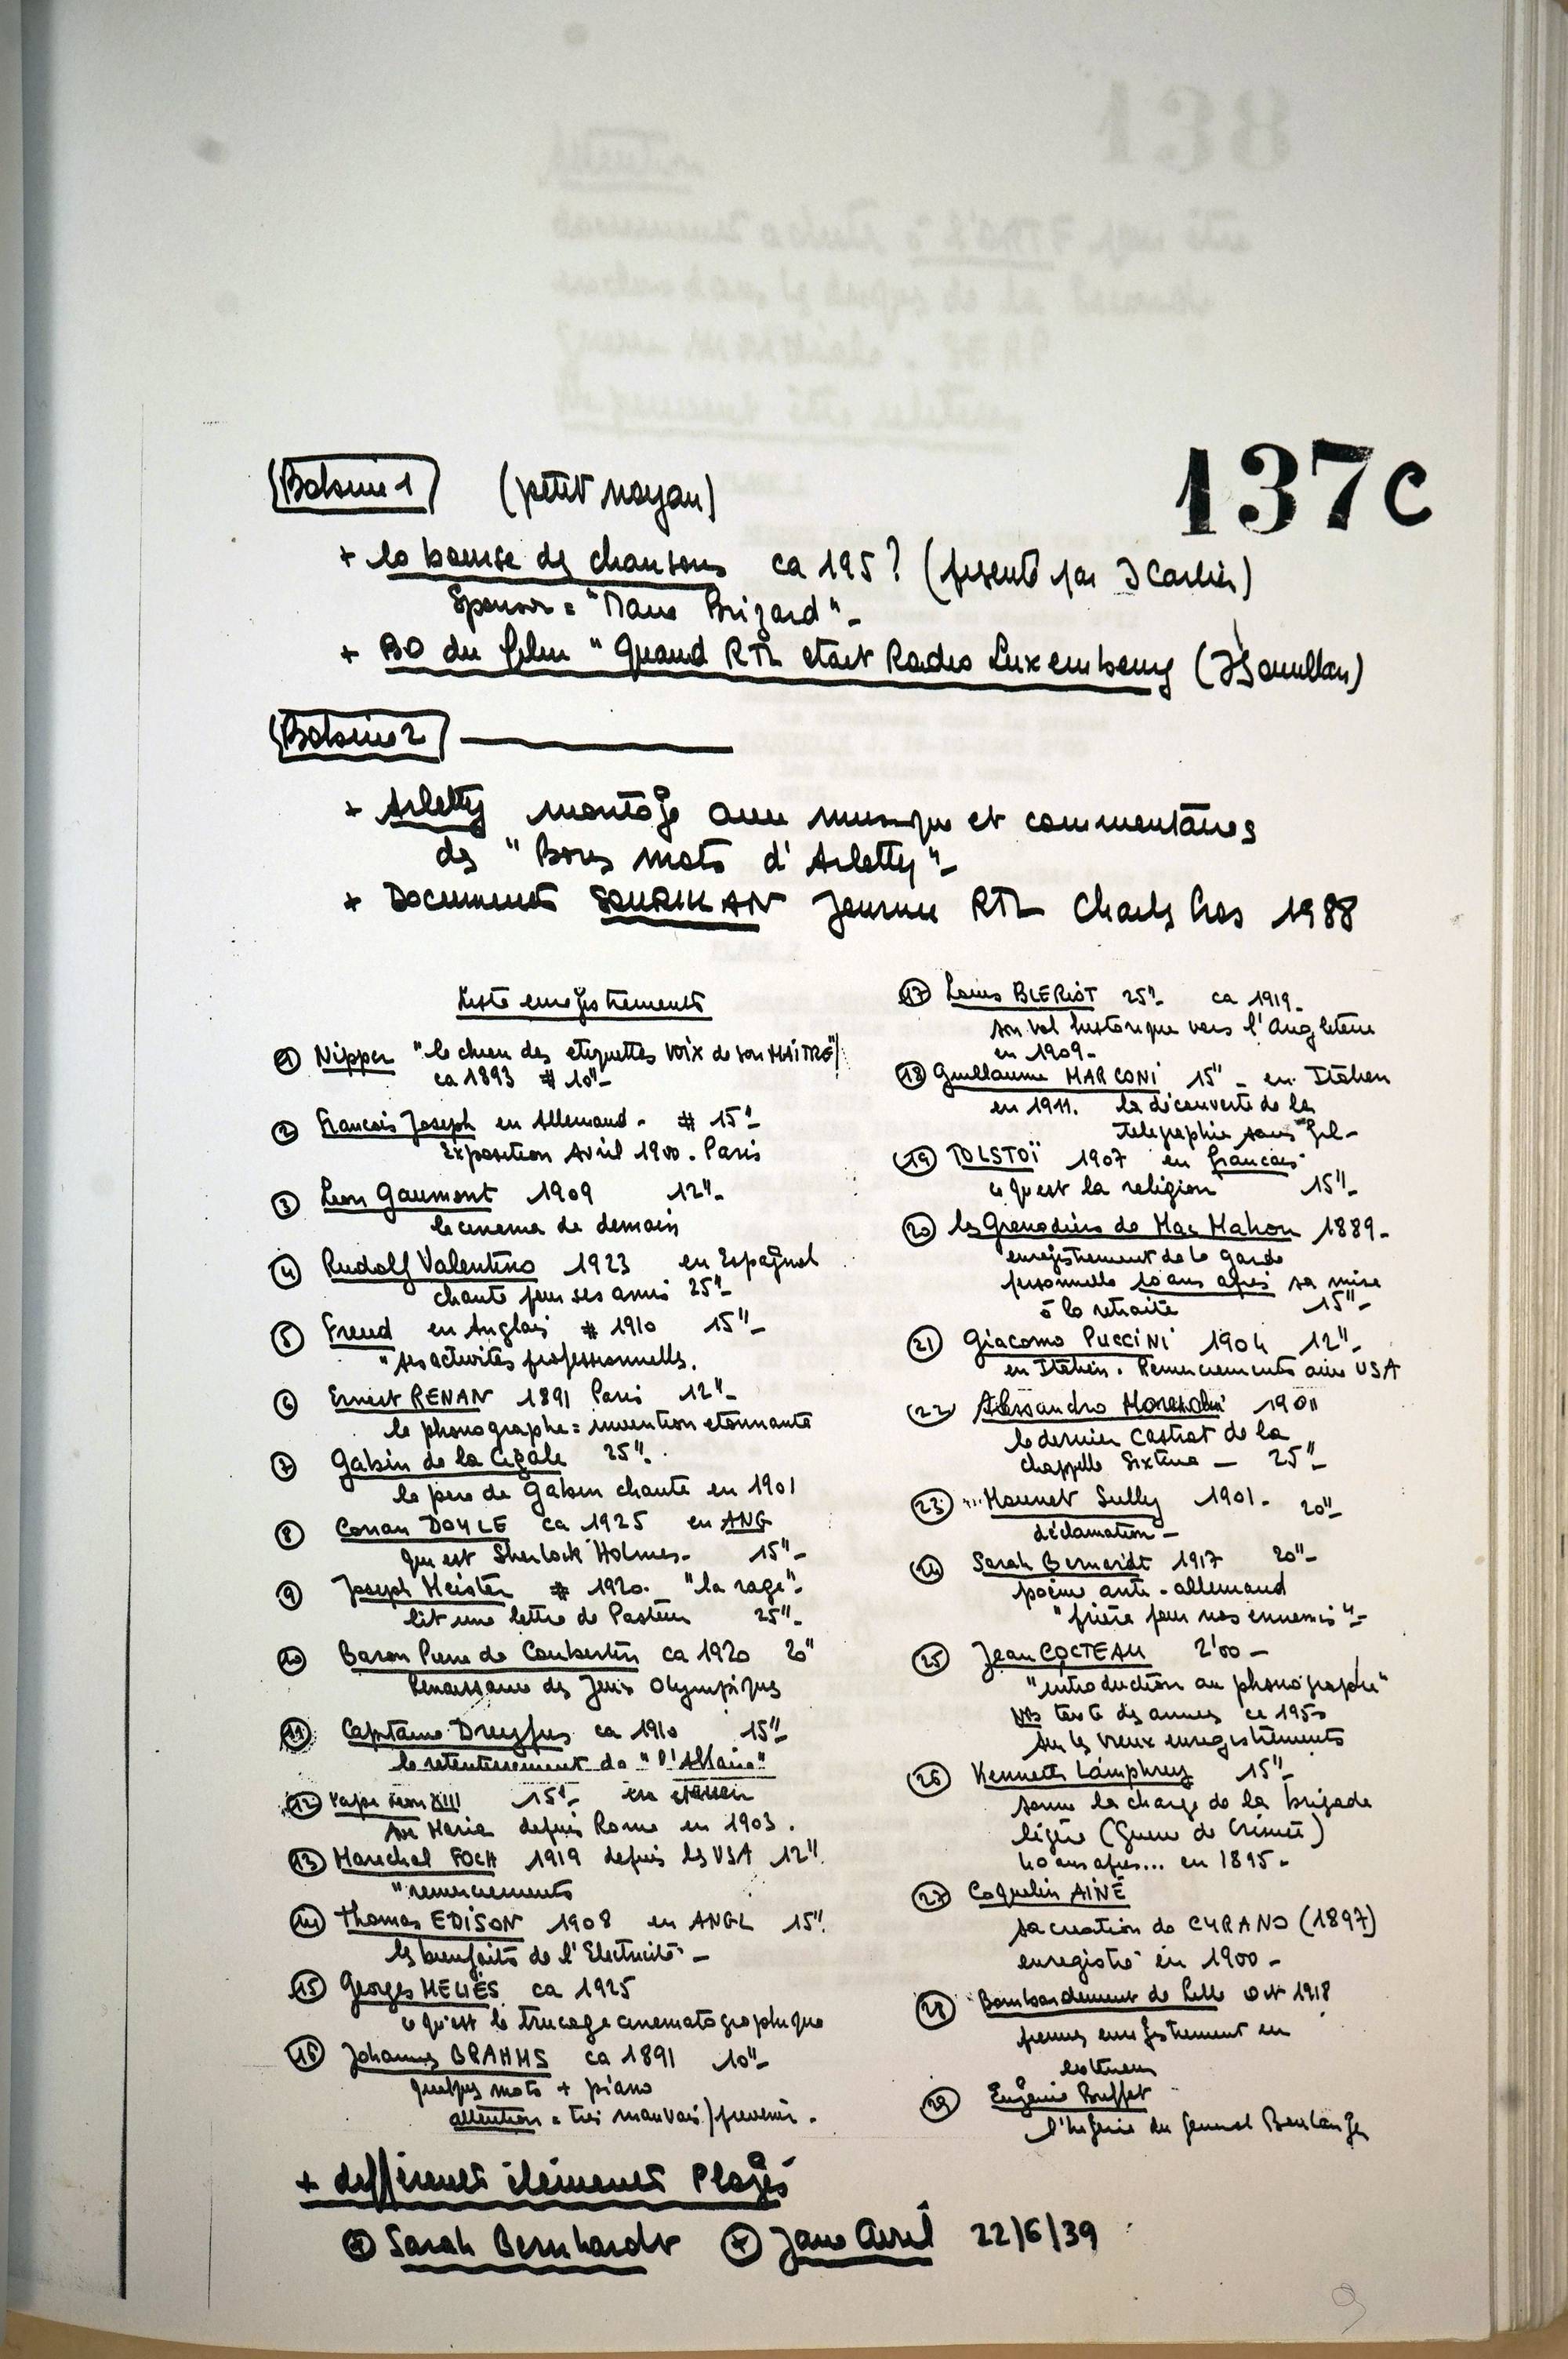 137C
Bobine 1 (petit noyau)
+ la bourse des chansons ca 195? (présenté par J Carlier)
Sponsor = "Marie Brizard" -
+ BO du film "Quand RTL etait Radio Luxembourg (JSourillan)
Bobine 2
+ Arletty montage avec musique et commentaires
des "Bons mots d'Arletty" -
+ Documents SOURILLAN Journee RTL Charles Cros 1988
Liste enregistrements
1 Nipper "le chien des etiquettes VOIX de son MAITRE"
ca 1893 # 10"-
2 Francois Joseph en Allemand - # 15"
Exposition Avril 1900. Paris
3 Leon Gaumont 1909 12"-
le cinema de demain
4 Rudolf Valentino 1923 en Espagnol
chante pour ses amis 25"-
5 Freud en Anglais # 1910 15"-
"ses activites professionnelles.
6 Ernest RENAN 1891 Paris 12"-
le phonographe = invention etonnante
7 Gabin de la Cigale 25".
le pere de Gabin chante en 1901
8 Conan DOYLE ca 1925 en ANG
qui est Sherlock Holmes - 15"-
9 Joseph Meister # 1920. "la rage" -
lit une lettre de Pasteur 25"-
10 Baron Pierre de Coubertin ca 1920 20"
Renaissance des Jeux Olympiques
11 Capitaine Dreyfus ca 1910 15"-
le retentissement de "l'Affaire"
12 Pape Leon XIII 15"- en
Ave Maria depuis Rome en 1903.
13 Marechal FOCH 1919 depuis les USA 12".
"remerciements
14 Thomas EDISON 1908 en ANGL 15".
les bienfaits de l'Electricité -
15 Georges MELIÈS ca 1925
ce qu'est le trucage cinematographique
16 Johannes BRAHMS ca 1891 10"-
quelques mots + piano
attention = très mauvais / prevenir.
17 Louis BLERIOT 25"- ca 1919 -
son vol historique vers l'Angleterre
en 1909 -
18 Guillaume MARCONI 15" - en Italien
en 1911. la découverte de la
Telegraphie sans Fil -
19 TOLSTOÏ 1907 en Francais
ce qu'est la religion 15"-
20 les Grenadiers de Mac Mahon 1889 -
enregistrement de la garde
personnelle 10 ans apres sa mise
à la retraite 15"-
21 Giacomo PUCCINI 1904 12"-
en Italien. Remerciements aux USA
22 Alessandro 1901
le dernier castrat de la
chappelle Sixtine - 25"-
23 Mounet Sully 1901 - 20"-
déclamation -
24 Sarah Bernardt 1917 20"-
poème anti-allemand
"prière pour nos ennemis" -
25 Jean COCTEAU 2'00 -
"introduction au phonographe"
NB texte des annees ca 1950
sur les vieux enregistrements
26 Kenneth Lamphrey 15"-
sonne la charge de la brigade
légère (Guerre de Crimée)
40 ans apres... en 1895 -
27 Coquelin AINÉ
sa creation de CYRANO (1897)
enregistré en 1900 -
28 Bombardement de Lille Oct 1918
premier enregistrement en
exterieur
29 Eugenie Buffet
l'hegerie du General Boulanger
+ différents éléments Plages
+ Sarah Bernhardt + Jane Avril 22/6/39
9